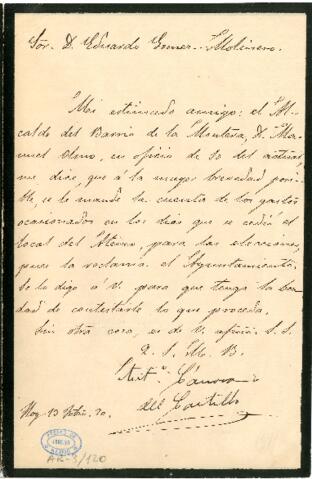 Sor. D. Eduardo Gomez. Molinero.
Mi estimado amigo: el Al-
calde del Barrio de la Montera, D. Ma-
nuel Olmo, en oficio de 10 del actual,
me dice, que á la mayor brevedad posi-
ble, se le mande la cuenta de los gastos
ocasionados en los dias que se cedió el
local del Ateneo, para las elecciones,
pues la reclama el Ayuntamiento.
Se lo digo á V. para que tenga la bon-
dad de contestarle lo que proceda.
Sin otra cosa, es de V. afmo. S. S.
Q. S. M. B.
Ant.º Cánovas
del Castillo
Hoy 13 Febro. 70.
AR-3/120